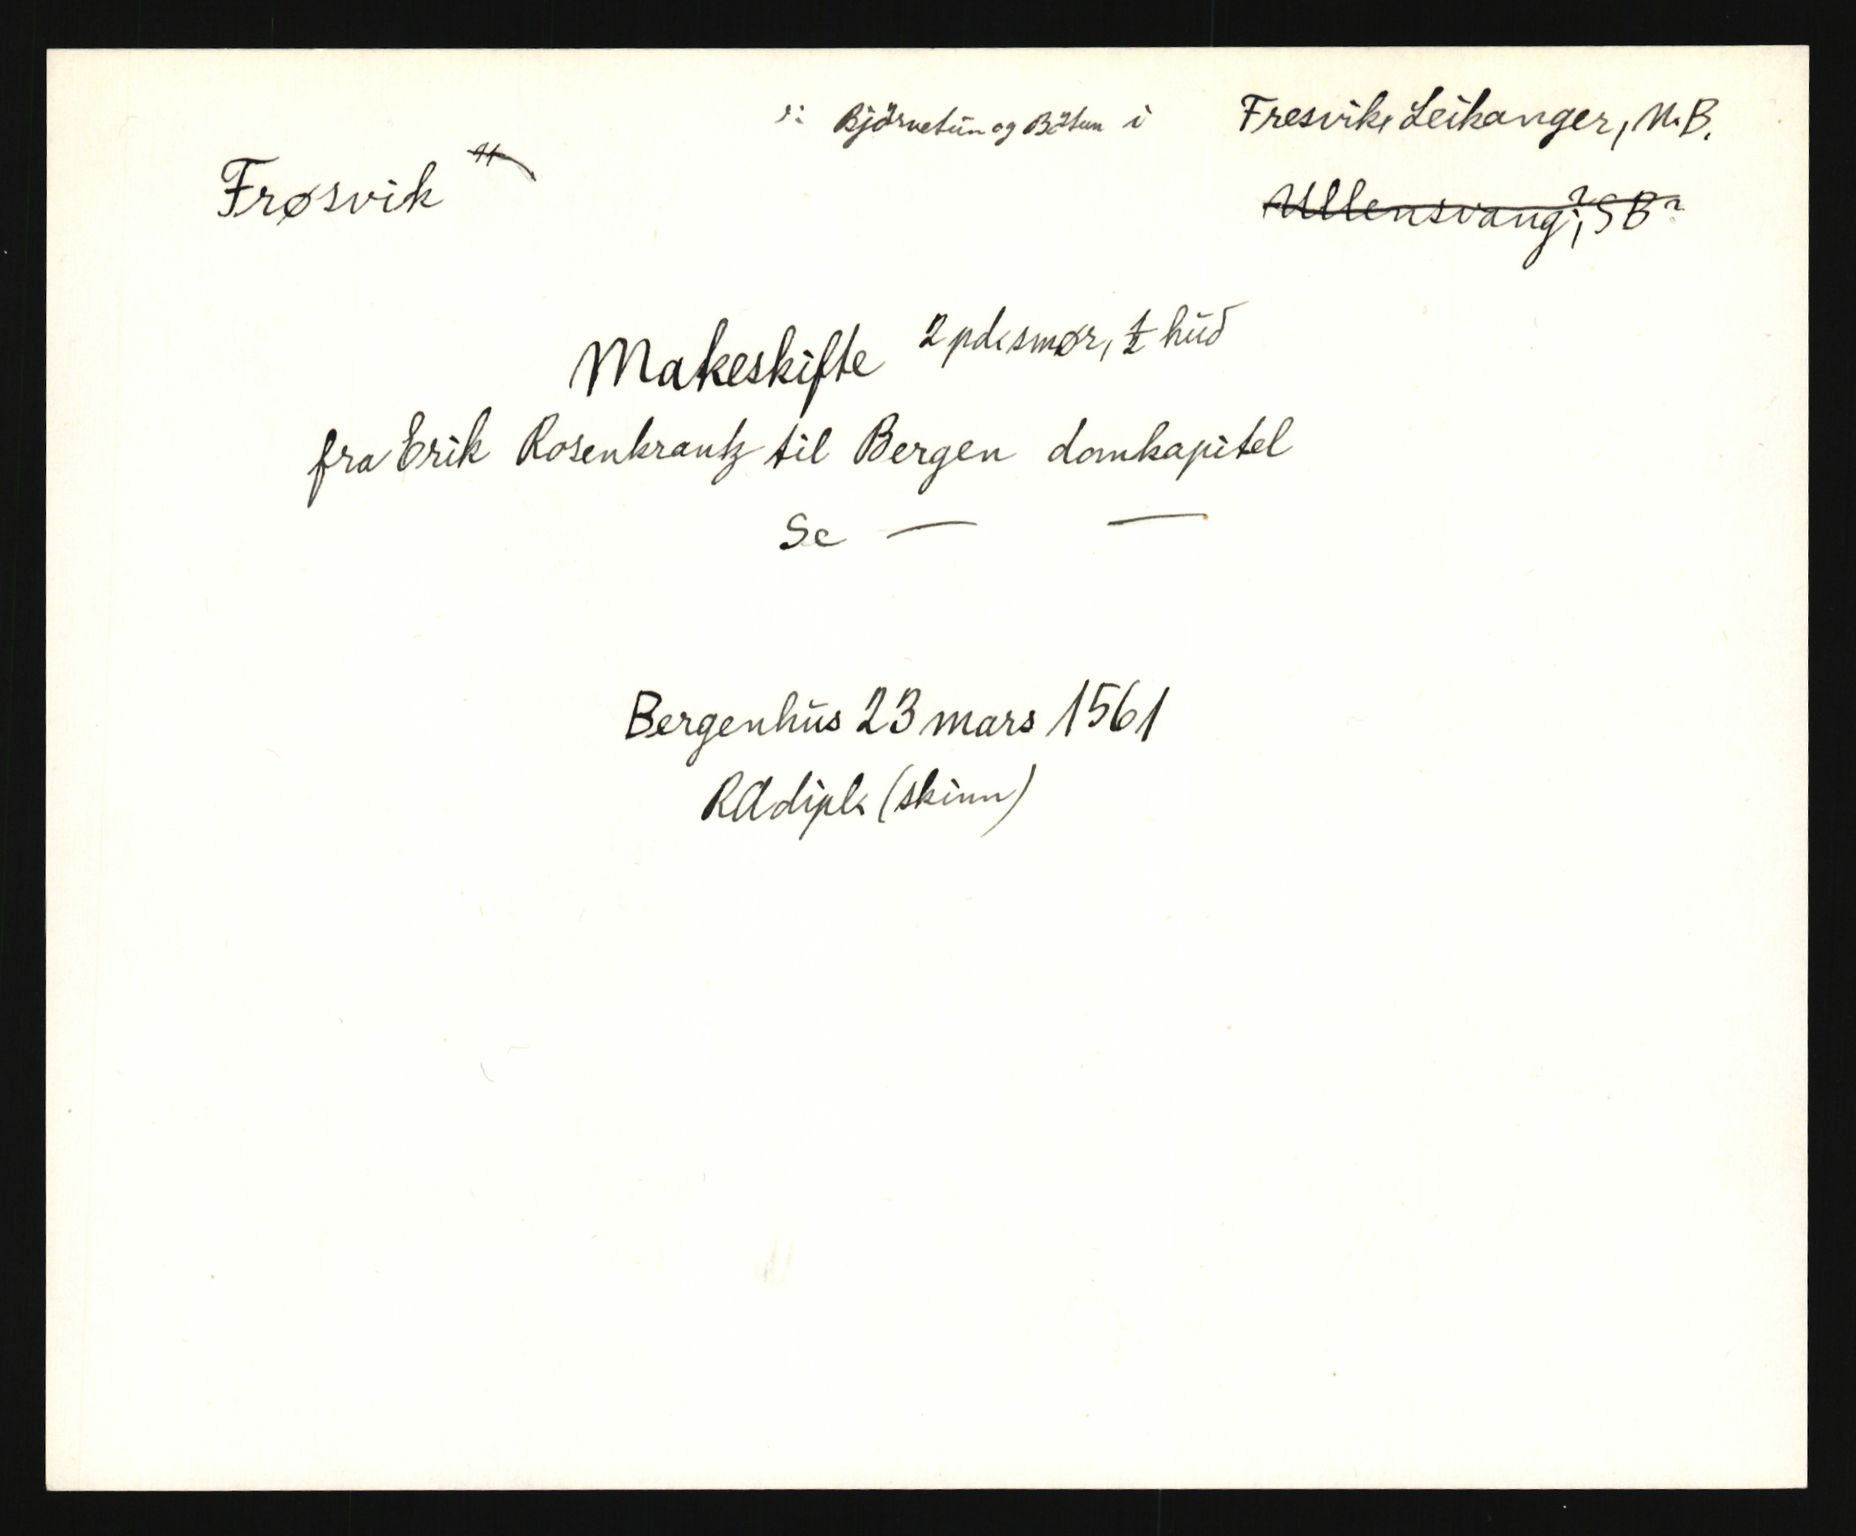 ɔ: Björnetun og Bötun i Fresvik, Leikanger, N.B.
Frøsvik
Ullensvang?, SB?
Makeskifte 2 pd. smør, ½ hud
fra Erik Rosenkrantz til Bergen domkapitel
Se — —
Bergenhus 23 mars 1561
RA dipl. (skinn)